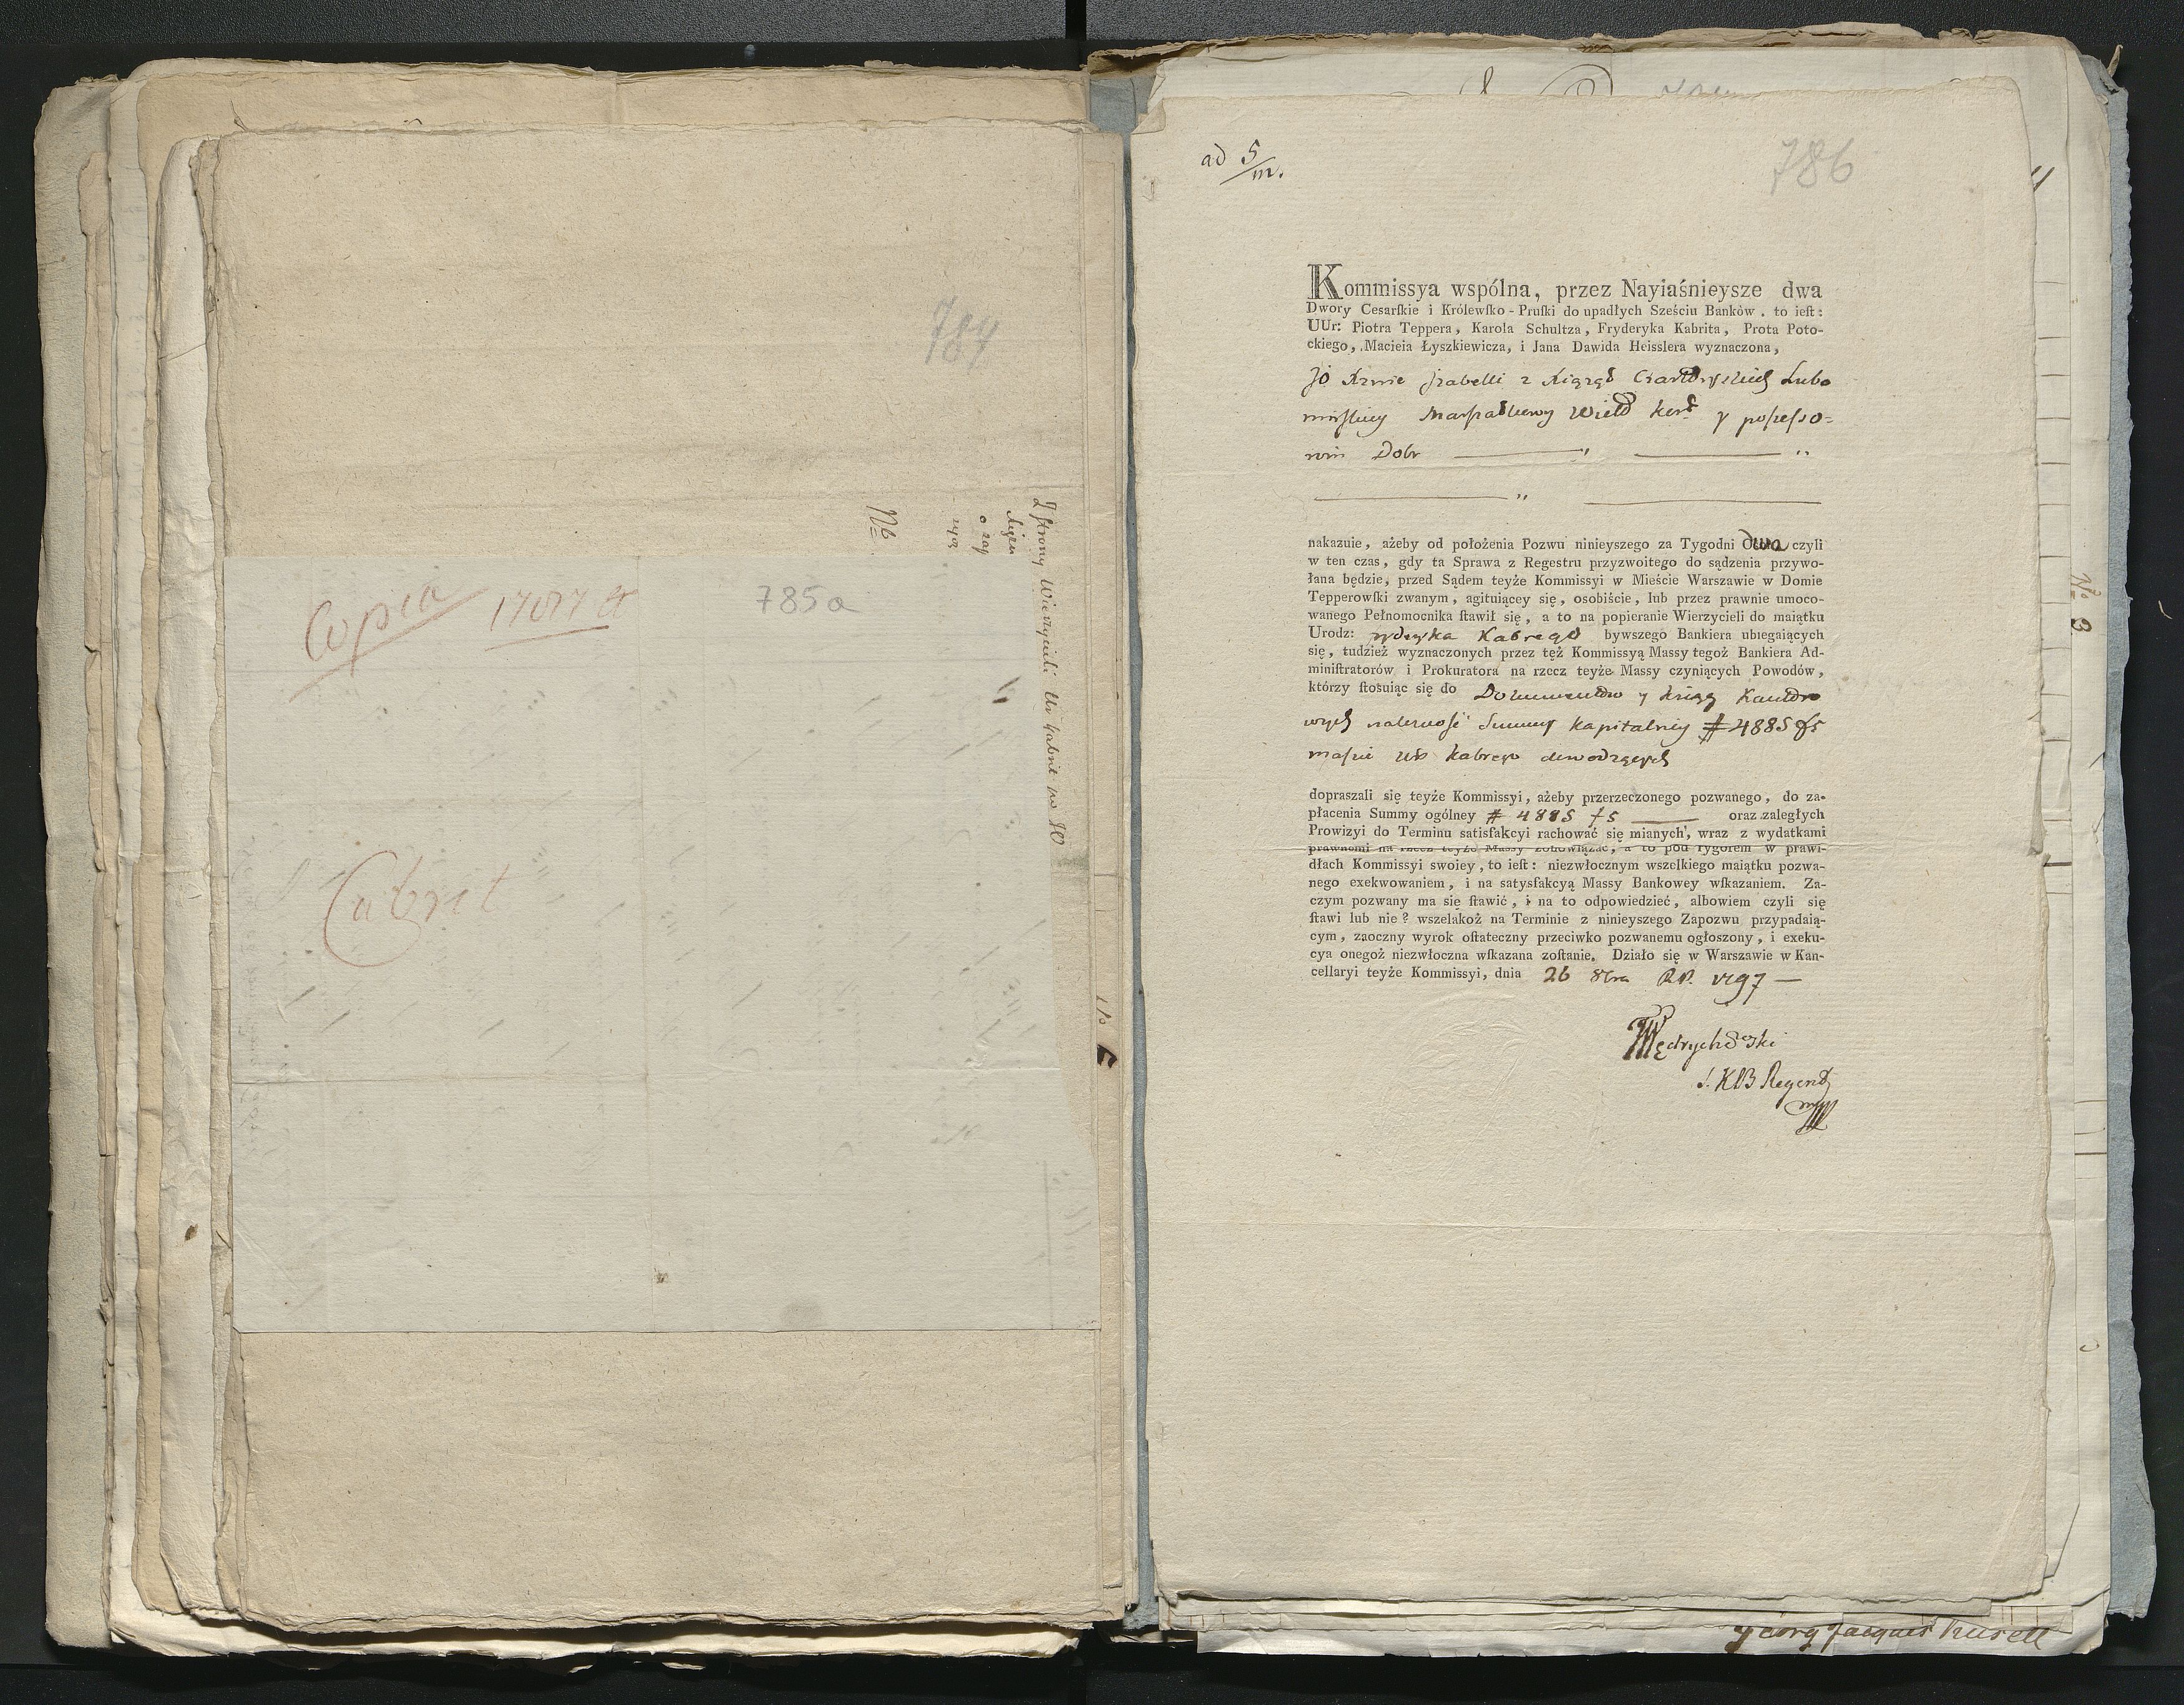 784
Z strony Wierzycieli Ur Kabrit no 10
Nb
Copia 17077 ct
785a
Cabrit
No 5
ad 5/m.
786
Kommissya wspólna, przez Nayiaśnieysze dwa
Dwory Cesarſkie i Królewſko-Pruſki do upadłych Sześciu Banków, to ieſt:
UUr: Piotra Teppera, Karola Schultza, Fryderyka Kabrita, Prota Poto-
ckiego, Macieia Łyszkiewicza, i Jana Dawida Heisslera wyznaczona,
Jo Xznie Jzabelli z Xiąząt Czartoryskich Lubo
mirſkiey Marszałkowy Wield Kord y poſeſſo-
rom Dobr
nakazuie, ażeby od położenia Pozwu ninieyszego za Tygodni dwa czyli
w ten czas, gdy ta Sprawa z Regestru przyzwoitego do sądzenia przywo-
łana będzie, przed Sądem teyże Kommissyi w Mieście Warszawie w Domie
Tepperowſki zwanym, agituiącey się, osobiście, lub przez prawnie umoco-
wanego Pełnomocnika ſtawił się, a to na popieranie Wierzycieli do maiątku
Urodz: Kabrego bywszego Bankiera ubiegaiących
się, tudzież wyznaczonych przez tęż Kommissyą Massy tegoż Bankiera Ad-
miniſtratorów i Prokuratora na rzecz teyże Massy czyniących Powodów,
którzy ſtosuiąc się do Dokumentow y Xiąg Kantoro
wych należność Summy Kapitalney # 4885 f 5
maſsie Ur Kabrego dowodzących
dopraszali się teyże Kommissyi, ażeby przerzeczonego pozwanego, do za-
płacenia Summy ogólney # 4885 f 5 oraz zaległych
Prowizyi do Terminu satisfakcyi rachować się mianych, wraz z wydatkami
prawnemi na rzecz teyże Massy zobowiązać, a to pod rygorem w prawi-
dłach Kommissyi swoiey, to ieſt: niezwłocznym wszelkiego maiątku pozwa-
nego exekwowaniem, i na satysfakcyą Massy Bankowey wſkazaniem. Za-
czym pozwany ma się ſtawić, i na to odpowiedzieć, albowiem czyli się
ſtawi lub nie? wszelakoż na Terminie z ninieyszego Zapozwu przypadaią-
cym, zaoczny wyrok oſtateczny przeciwko pozwanemu ogłoszony, i exeku-
cya onegoż niezwłoczna wſkazana zoſtanie. Działo się w Warszawie w Kan-
cellaryi teyże Kommissyi, dnia 26 8bra R.P. 1797
Mędrychowski
S. KB Regent
mp
No 3
Georg Jacques Rusell